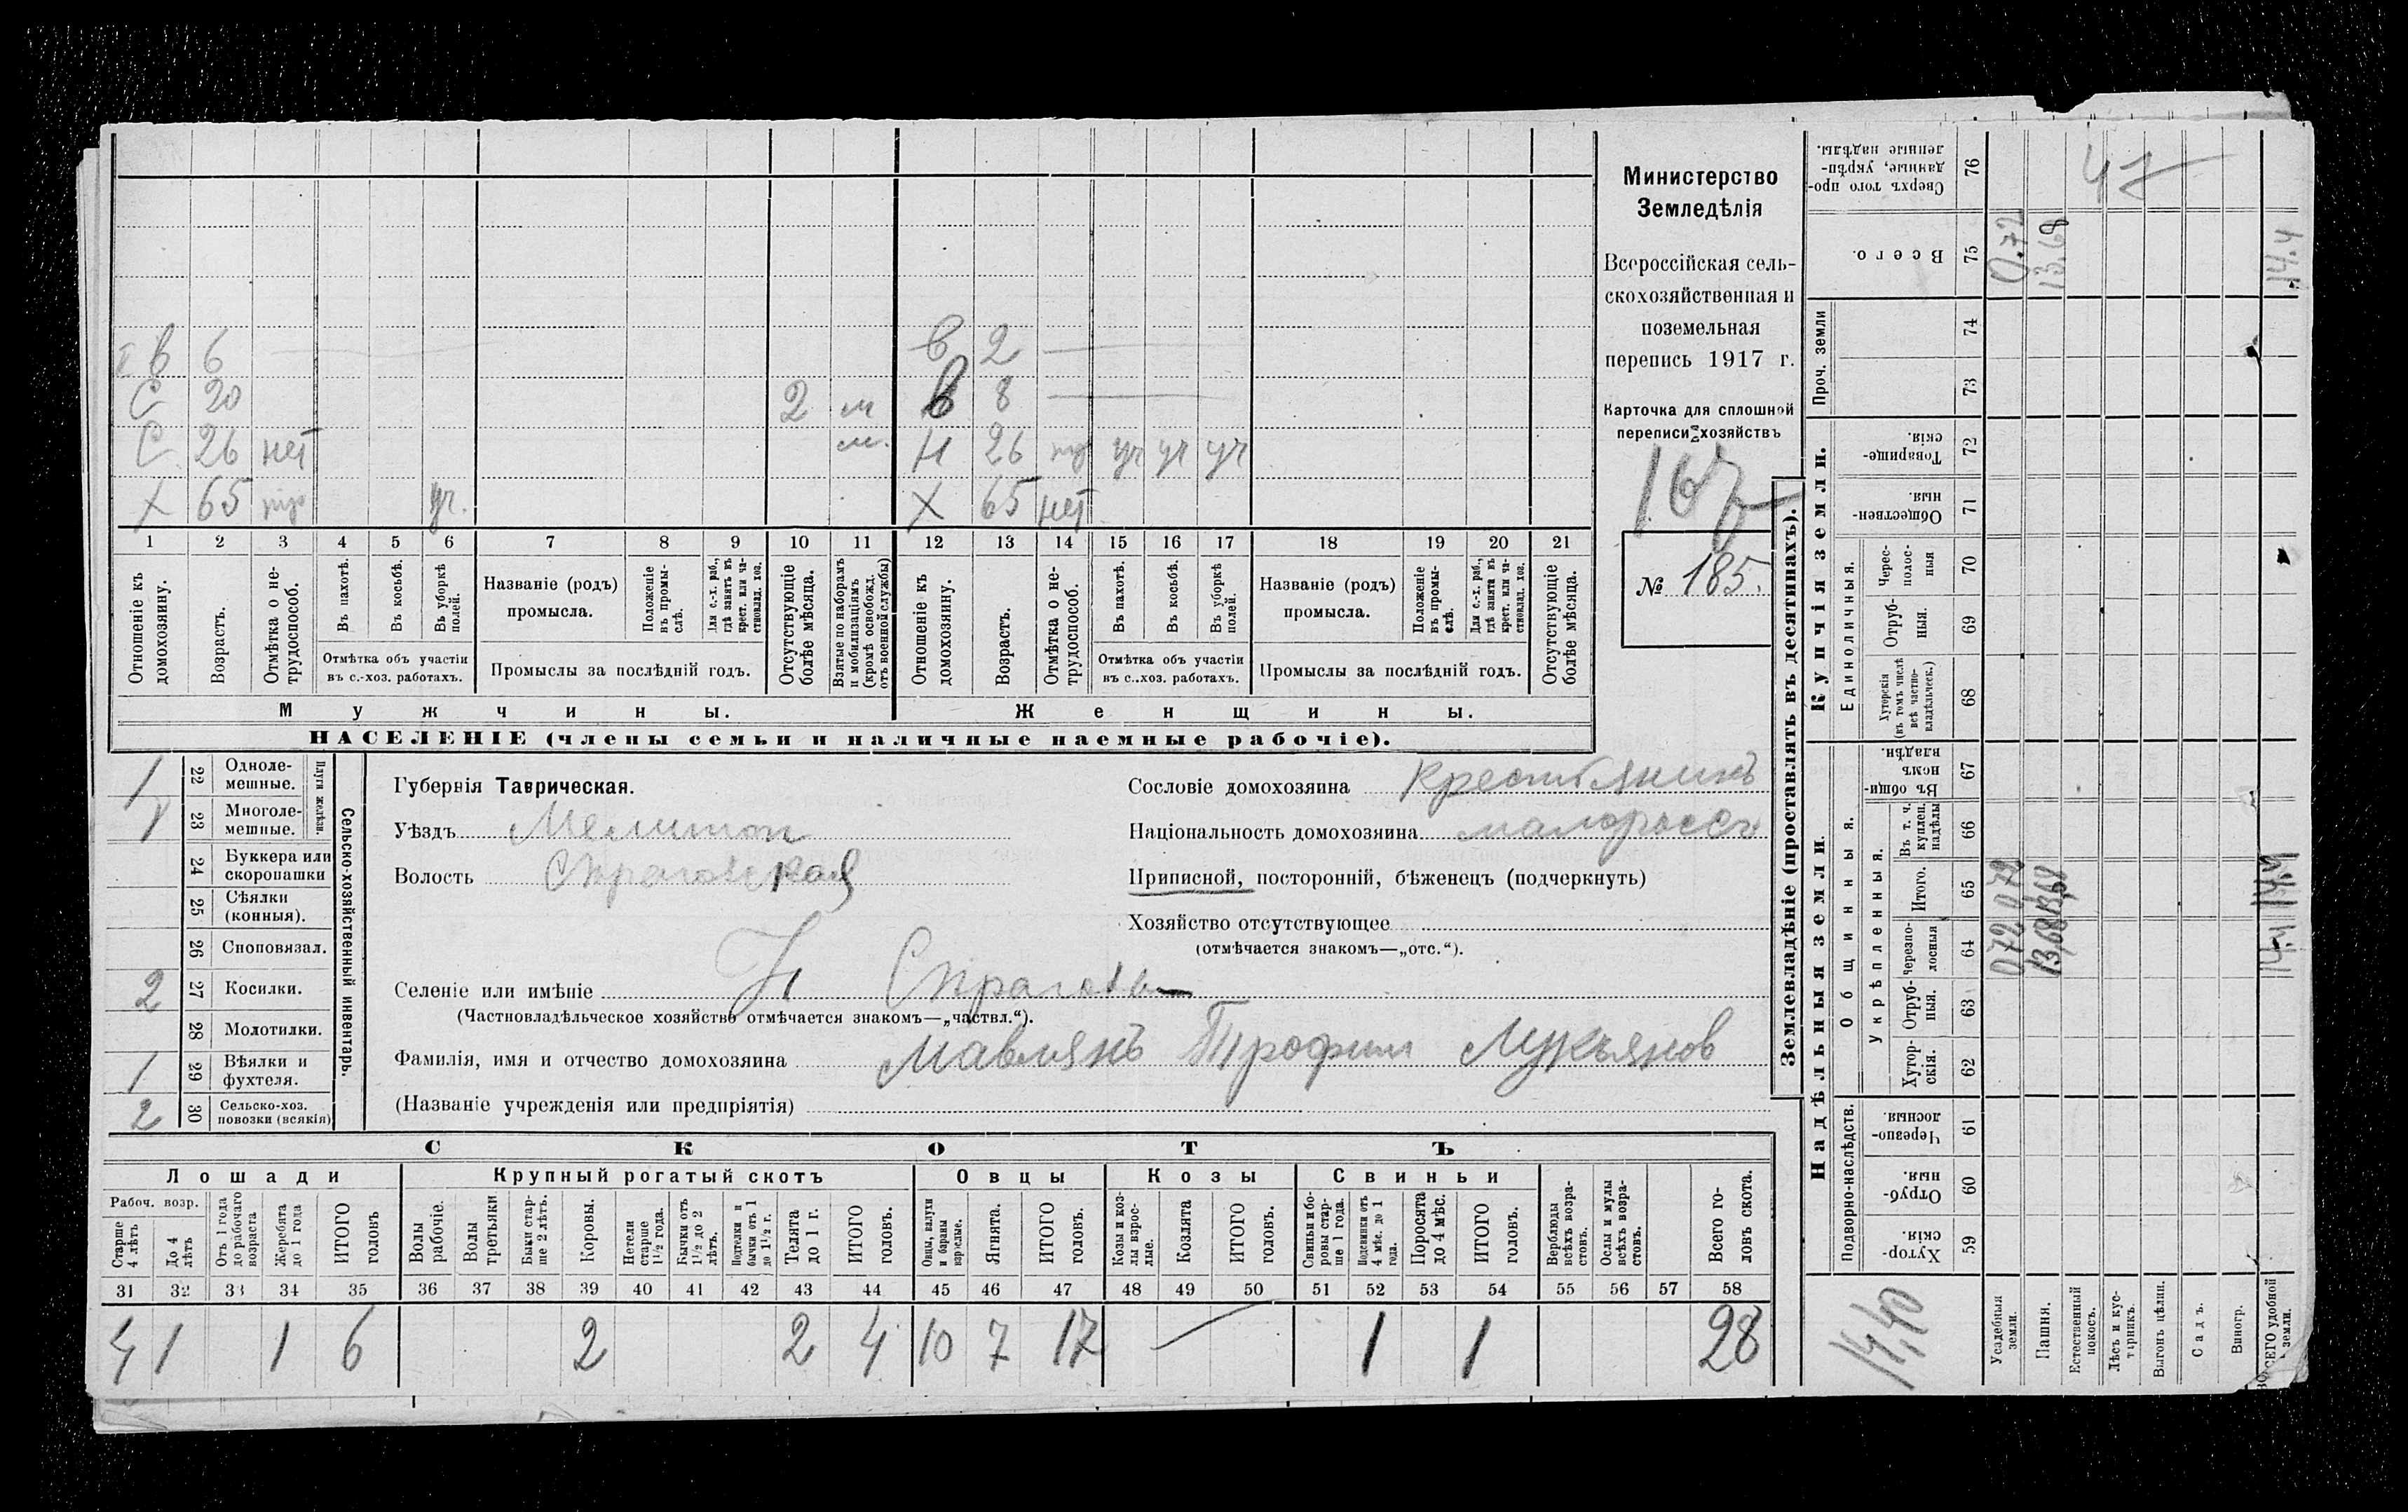 Министерство
Земледѣлія
Всероссійская сель-
скохозяйственная и
поземельная
перепись 1917 г.
Карточка для сплошной
переписи хозяйствъ
167
№ 185.
В 6 В 2
С 20 2 м В 8
С 26 нет м. Н 26 тр уч уч уч
Х 65 тр уч. Х 65 нет
1 2 3 4 5 6 7 8 9 10 11 12 13 14 15 16 17 18 19 20 21
Отношеніе къ домохозяину.
Возрастъ.
Отмѣтка о не-трудоспособ.
Въ пахотѣ.
Въ косьбѣ.
Въ уборкѣ полей.
Отмѣтка объ участіи
въ с.-хоз. работахъ.
Названіе (родъ)
промысла.
Положеніе въ промы-слѣ.
Для с.-х. раб., гдѣ занятъ въ крест. или ча-стновлад. хоз.
Промыслы за послѣдній годъ.
Отсутствующіе болѣе мѣсяца.
Взятые по наборамъ и мобилизаціямъ (кромѣ освобожд. отъ военной службы)
Отношеніе къ домохозяину.
Возрастъ.
Отмѣтка о не-трудоспособ.
Въ пахотѣ.
Въ косьбѣ.
Въ уборкѣ полей.
Отмѣтка объ участіи
въ с..хоз. работахъ.
Названіе (родъ)
промысла.
Положеніе въ промы-слѣ.
Для с.-х. раб., гдѣ занята въ крест. или ча-стновлад. хоз.
Промыслы за послѣдній годъ.
Отсутствующіе болѣе мѣсяца.
Мужчины. Женщины.
НАСЕЛЕНІЕ (члены семьи и наличные наемные рабочіе).
Сельско-хозяйственный инвентарь.
Плуги желѣзн.
1 22 Одноле-мешные.
1 23 Многоле-мешные.
24 Буккера или скоропашки
25 Сѣялки (конныя).
26 Сноповязал.
2 27 Косилки.
28 Молотилки.
1 29 Вѣялки и фухтеля.
2 30 Сельско-хоз. повозки (всякія)
Губернія Таврическая.
Уѣздъ Мелитоп
Волость
Сословіе домохозяина крестьянинъ
Національность домохозяина малороссъ
Приписной, посторонній, бѣженецъ (подчеркнуть)
Хозяйство отсутствующее
(отмѣчается знакомъ—„отс.“).
Селеніе или имѣніе
(Частновладѣльческое хозяйство отмѣчается знакомъ—„частвл.“).
Фамилія, имя и отчество домохозяина Трофим Лукьянов
(Названіе учрежденія или предпріятія)
СКОТЪ
Лошади Крупный рогатый скотъ Овцы Козы Свиньи
Рабоч. возр.
Старше 4 лѣтъ
До 4 лѣтъ
Отъ 1 года до рабочаго возраста
Жеребята до 1 года
ИТОГО головъ
Волы рабочіе.
Волы третьяки
Быки стар-ше 2 лѣтъ.
Коровы.
Нетели старше 1½ года.
Бычки отъ 1½ до 2 лѣтъ.
Подтелки и бычки отъ 1 до 1½ г.
Телята до 1 г.
ИТОГО головъ.
Овцы, валухи и бараны взрослые.
Ягнята.
ИТОГО головъ.
Козы и коз-лы взрос-лые.
Козлята
ИТОГО головъ.
Свиньи и бо-ровы стар-ше 1 года.
Подсвинки отъ 4 мѣс. до 1 года.
Поросята до 4 мѣс.
ИТОГО головъ.
Верблюды всѣхъ возра-стовъ.
Ослы и мулы всѣхъ возра-стовъ.
Всего го-ловъ скота.
31 32 33 34 35 36 37 38 39 40 41 42 43 44 45 46 47 48 49 50 51 52 53 54 55 56 57 58
4 1 1 6 2 2 4 10 7 17 1 1 28
Землевладѣніе (проставлять въ десятинахъ).
Надѣльныя земли. Купчія земли. Проч. земли
Подворно-наслѣдств. Общинныя. Укрѣпленныя. Единоличныя.
Хутор-скія. 59
Отруб-ныя. 60
Черезпо-лосныя. 61
Хутор-скія. 62
Отруб-ныя. 63
Черезпо-лосныя 64
Итого. 65
Въ т. ч. куплен. надѣлы 66
Въ общи-номъ владѣн. 67
Хуторскія (въ томъ числѣ всѣ частно-владѣльческ.) 68
Отруб-ныя. 69
Черес-полос-ныя 70
Обществен-ныя. 71
Товарище-скія. 72
73
74
Всего. 75
Сверхъ того про-данные, укрѣп-ленные надѣлы. 76
14,40
Усадебныя земли. 0,72 0,72 0.72
Пашня. 13,68 13,68 13.68
Естественный покосъ.
Лѣсъ и кус-тарникъ.
Выгонъ цѣлин.
Садъ.
Виногр.
ВСЕГО удобной земли. 14.4 14.4 14.4
47